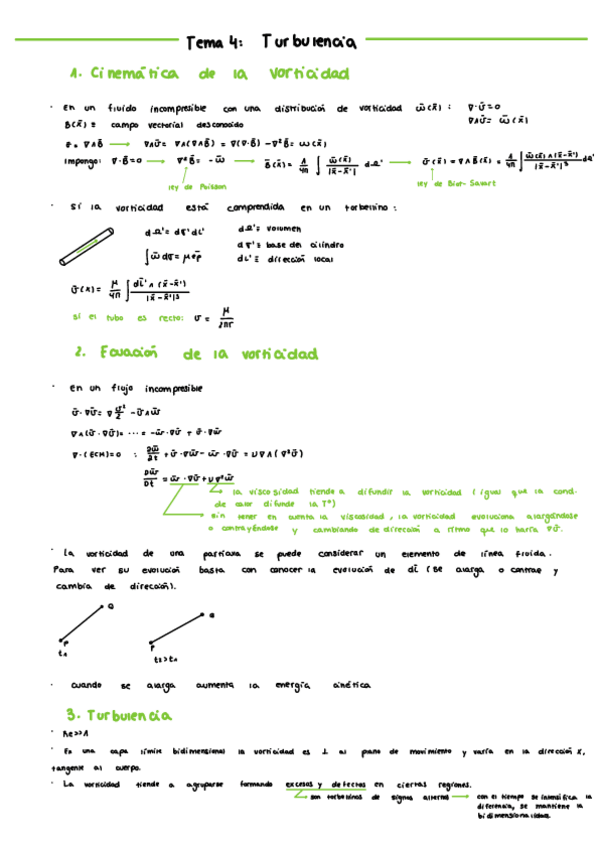 Tema 4: Turbulencia
1. Cinemática de la vorticidad
· En un fluido incompresible con una distribución de vorticidad ω̄(x̄) : ∇·ū=0
B(x̄) ≡ campo vectorial desconocido ∇∧ū= ω̄(x̄)
∇∧ū= ∇∧(∇∧B̄) = ∇(∇·B̄) - ∇²B̄= ω̄(x̄)
Impongo: ∇·B̄=0 → ∇²B̄= -ω̄ → B̄(x̄) = 1/4π ∫ ω̄(x̄')/|x̄-x̄'| dΩ' → ū(x̄) = ∇∧B̄(x̄) = 1/4π ∫ ω̄(x̄')∧(x̄-x̄')/|x̄-x̄'|³ dΩ'
ley de Poisson ley de Biot-Savart
· Si la vorticidad está comprendida en un torbellino:
dΩ'= dσ'dL' dΩ'≡ volumen
dσ'≡ base del cilindro
∫ω̄ dσ= μ dL'≡ dirección local
ū(x) = μ/4π ∫ dL̄'∧(x̄-x̄')/|x̄-x̄'|³
si el tubo es recto: u = μ/2πr
2. Ecuación de la vorticidad
· En un flujo incompresible
ū·∇ū= ∇ u²/2 - ū∧ω̄
∇∧(ū·∇ū)= ... = -ω̄·∇ū + ū·∇ω̄
∇·(ECM)=0 : ∂ω̄/∂t + ū·∇ω̄ - ω̄·∇ū = ν∇∧(∇²ū)
Dω̄/Dt = ω̄·∇ū+ν∇²ω̄
la viscosidad tiende a difundir la vorticidad (igual que la cond.
de calor difunde la Tª)
sin tener en cuenta la viscosidad, la vorticidad evoluciona alargándose
o contrayéndose y cambiando de dirección a ritmo que lo haría ∇ū.
· La vorticidad de una partícula se puede considerar un elemento de línea fluida.
Para ver su evolución basta con conocer la evolución de dL̄ (se alarga o contrae y
cambia de dirección).
Q
Q
P
P
t₁
t₂>t₁
· Cuando se alarga aumenta la energía cinética
3. Turbulencia
· Re>>1
· En una capa límite bidimensional la vorticidad es ⊥ al plano de movimiento y varía en la dirección x,
tangente al cuerpo.
· La vorticidad tiende a agruparse formando excesos y defectos en ciertas regiones.
son torbellinos de signos alternos → con el tiempo se intensifica la
diferencia, se mantiene la
bidimensionalidad.